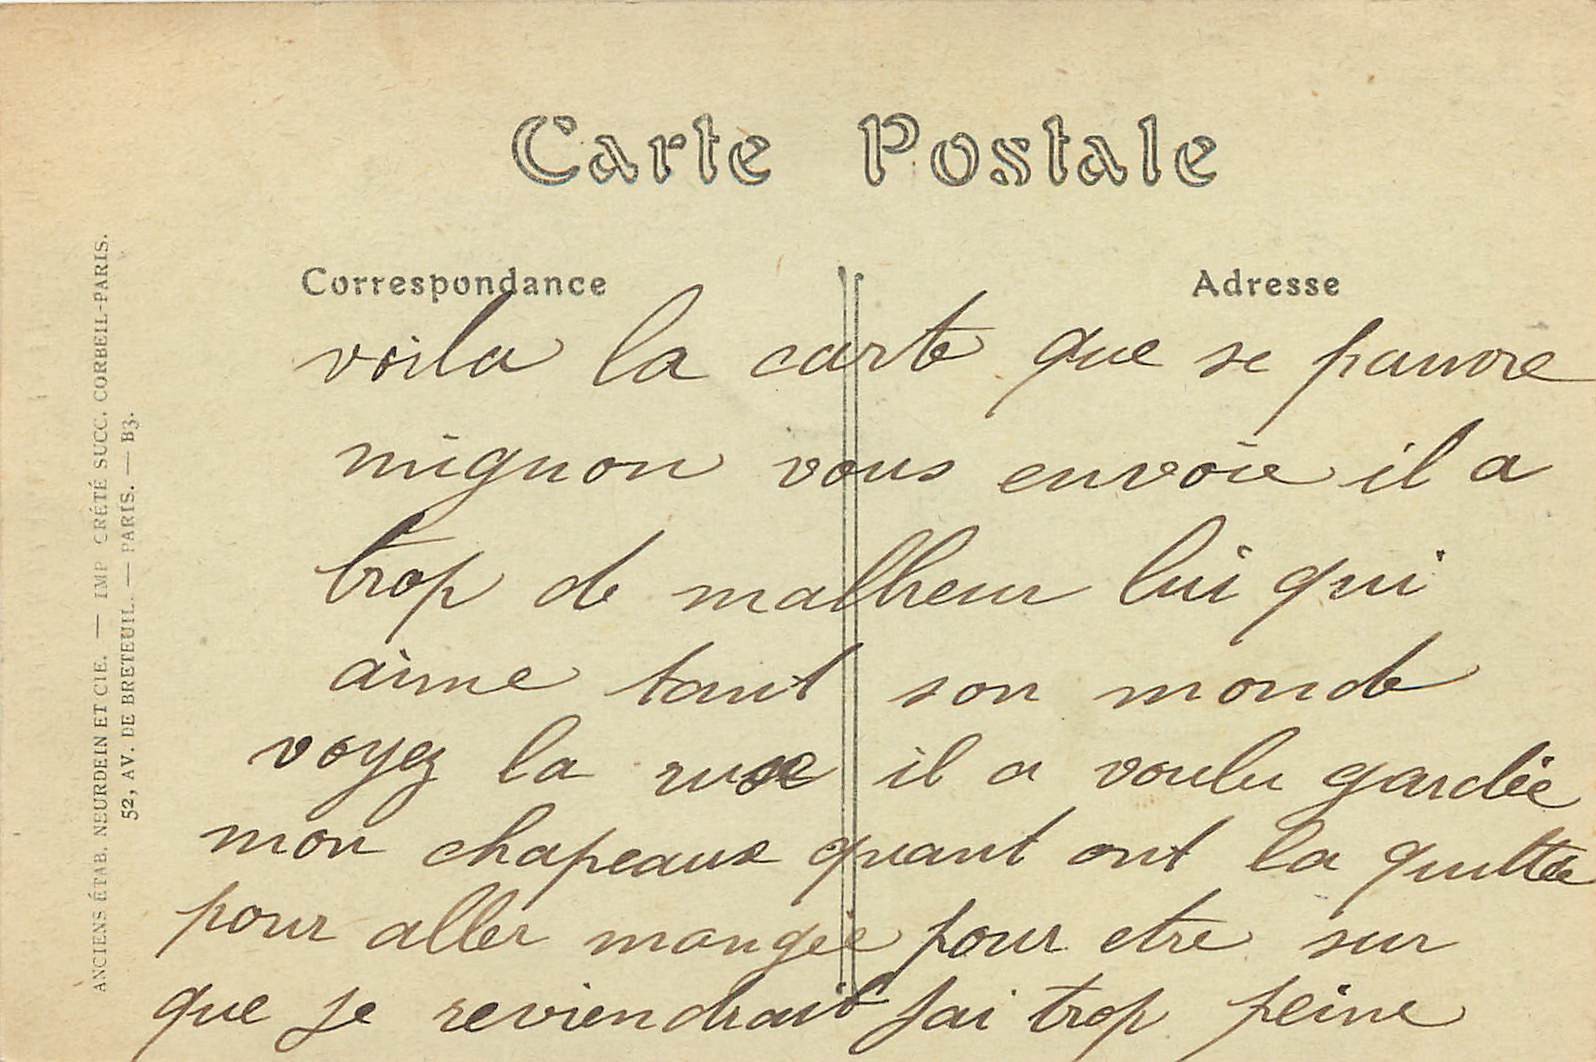 Carte Postale
Correspondance
Adresse
voila la carte que se pauvre
mignon vous envoie il a
trop de malheur lui qui
aime tant son monde
voyez la ruse il a voulu gardée
mon chapeaux quant ont la quittée
pour aller mangée pour etre sur
que je reviendrait jai trop peine
ANCIENS ÉTAB. NEURDEIN ET CIE. — IMP CRÉTÉ SUCC. CORBEIL-PARIS.
52, AV. DE BRETEUIL. — PARIS. — B3.